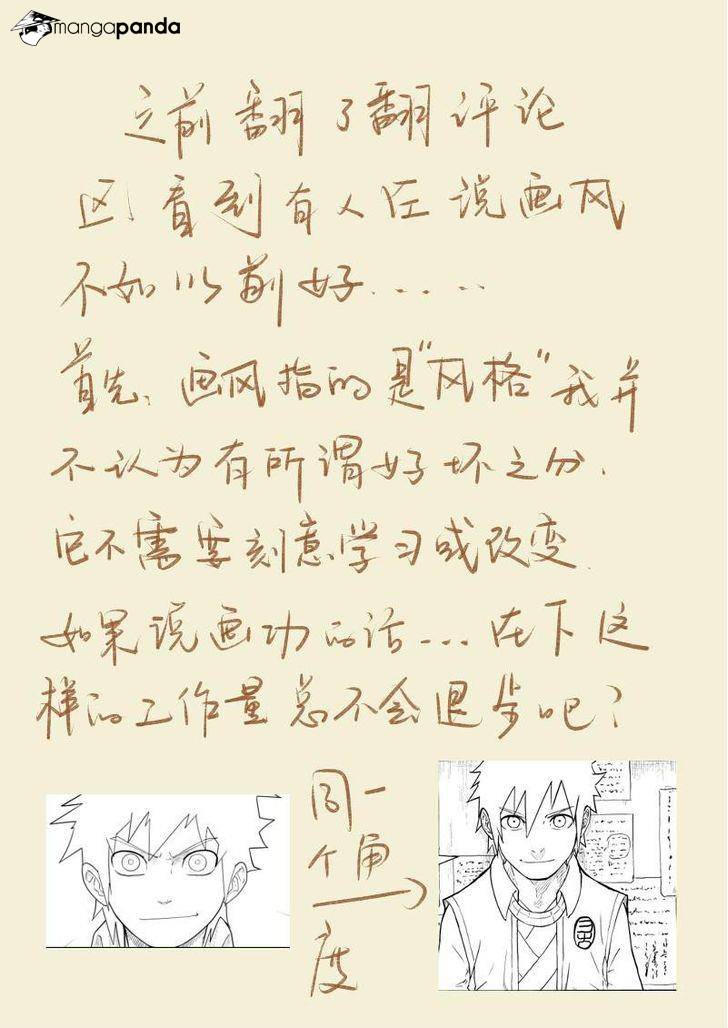 mangapanda
之前翻了翻评论
又看到有人在说画风
不如以前好......
首先，画风指的是"风格"我并
不认为有所谓好坏之分.
它不需要刻意学习或改变.
如果说画功的话...在下这
样的工作量总不会退步吧？
同一
个角
度